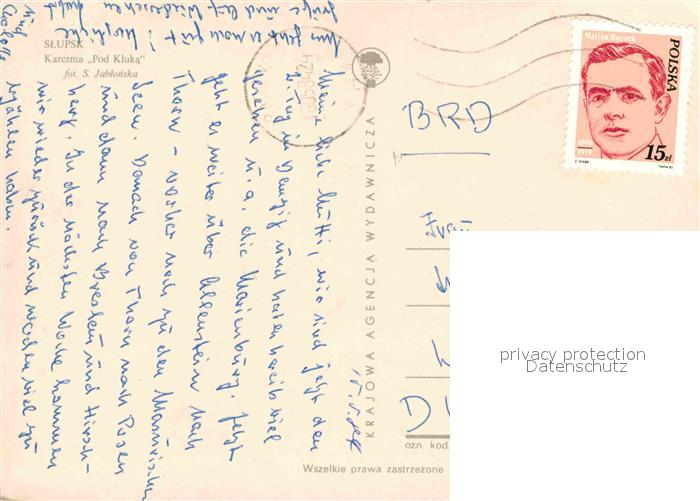 SŁUPSK
Karczma „Pod Kluką"
fot. S. Jabłońska
Meine liebe Mutti, wir sind jetzt den
2. Tag in Danzig und haben bereits viel
gesehen u. a. die Marienburg. Jetzt
geht es weiter über Allenstein nach
Thorn - vorher noch zu den Masurischen
Seen. Danach von Thorn nach Posen
und dann nach Breslau und Hirsch-
berg. In der nächsten Woche kommen
wir wieder zurück und werden viel zu
erzählen haben.
Uns geht es noch gut! Herzliche
Grüße und auf Wiedersehen
und
KRAJOWA AGENCJA WYDAWNICZA
Marian Buczek
POLSKA
1896
15 zł
BRD
ozn. kod.
Wszelkie prawa zastrzeżone
privacy protection
Datenschutz